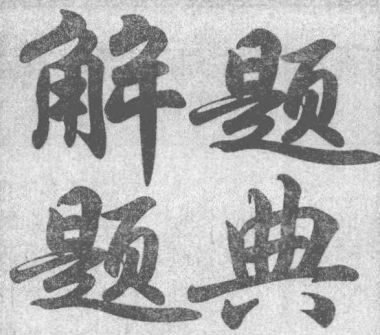 解题
题典